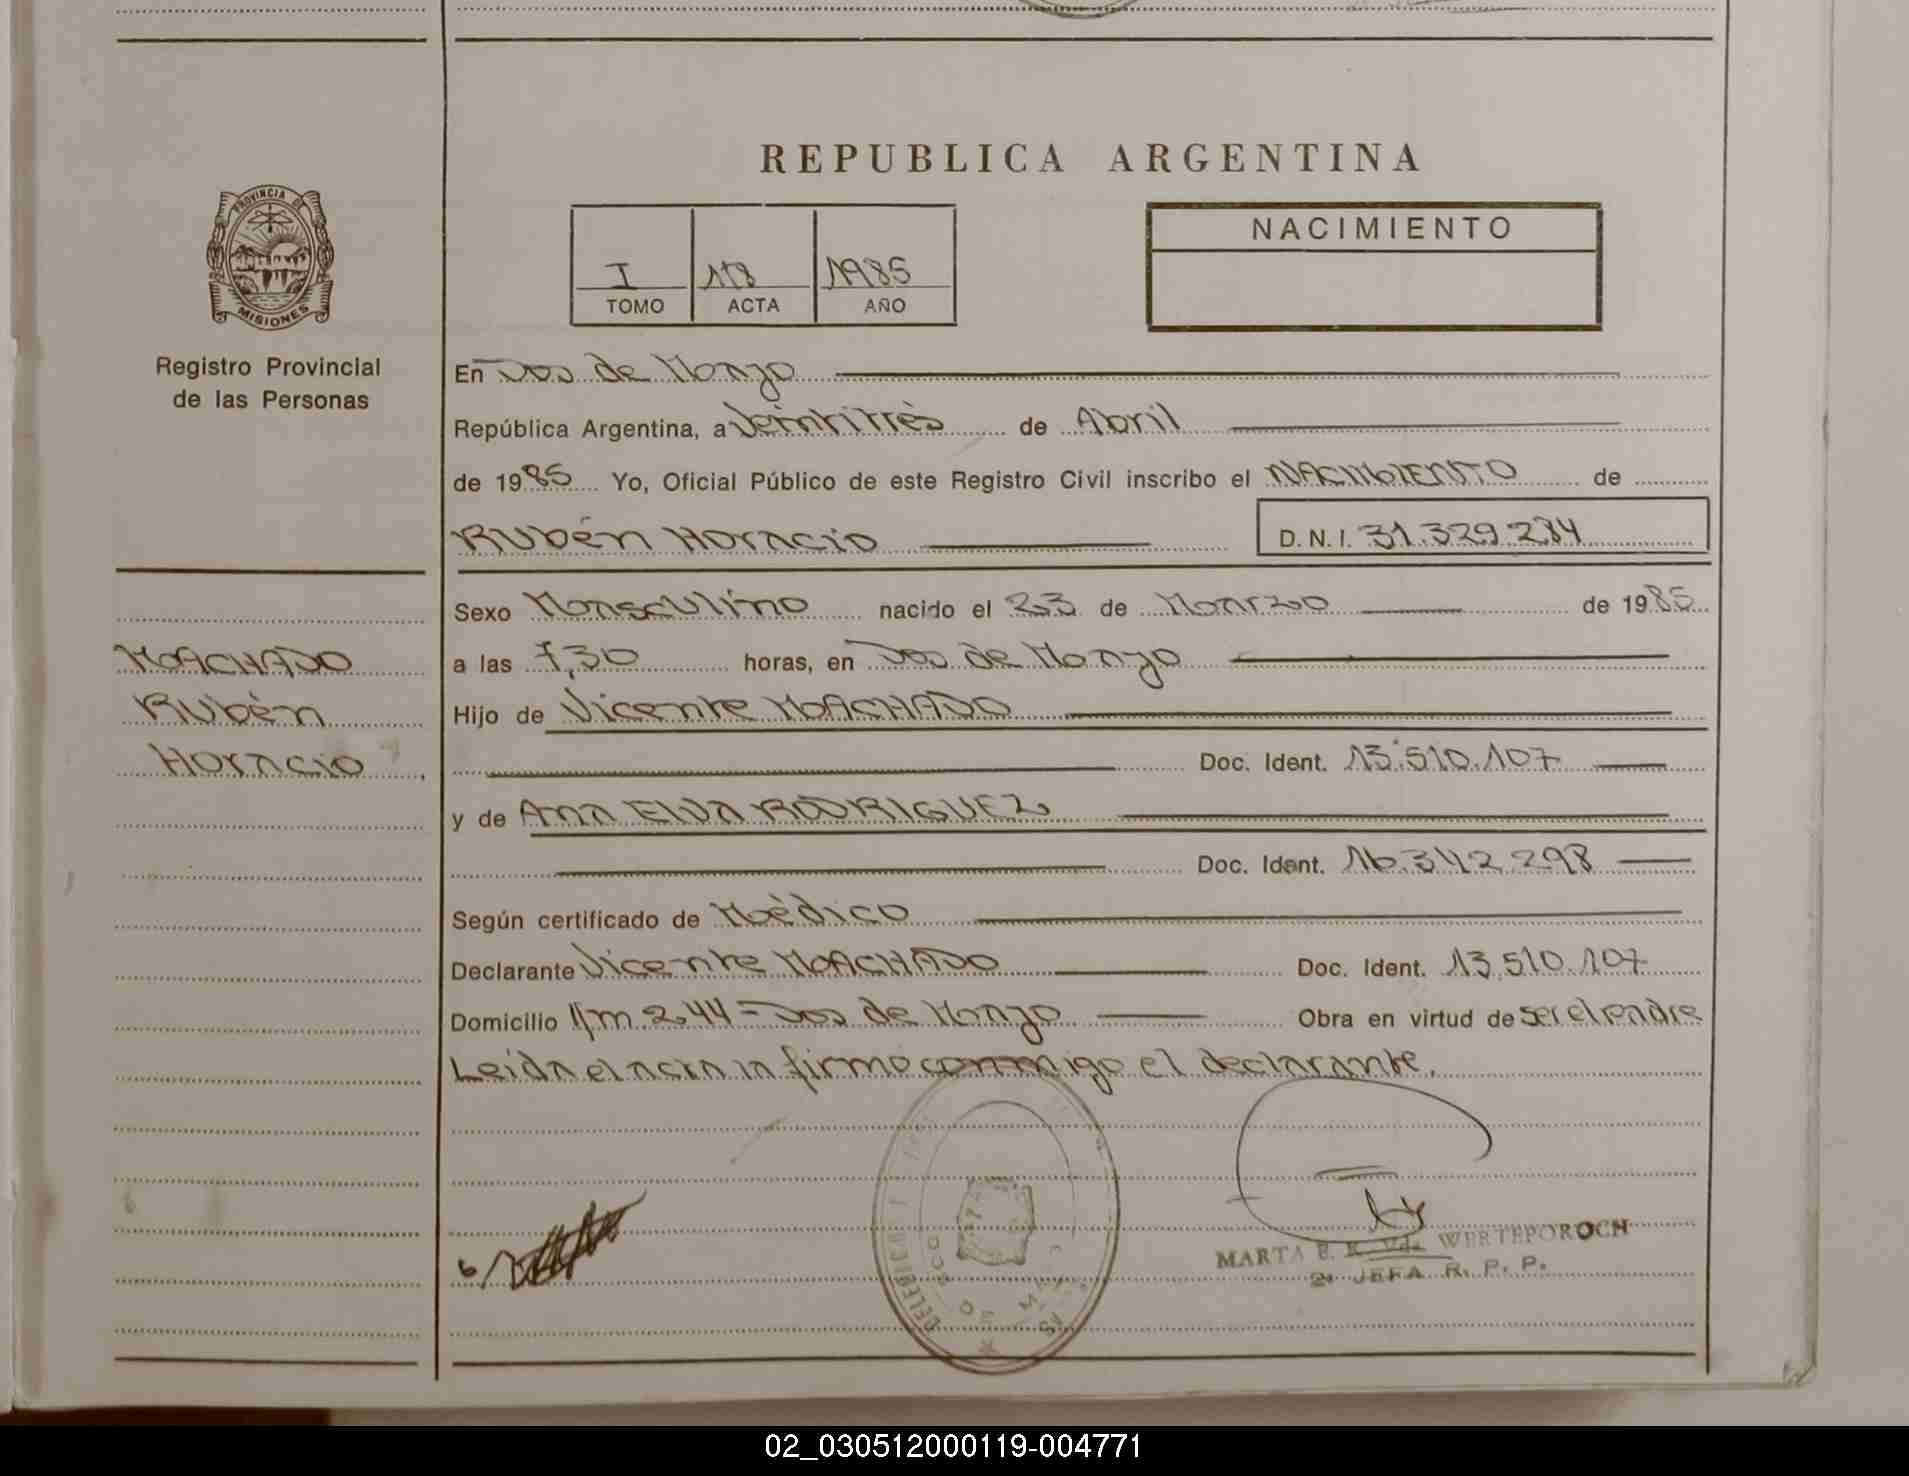 REPUBLICA ARGENTINA
PROVINCIA DE
MISIONES
Registro Provincial
de las Personas
I 118 1985
TOMO ACTA AÑO
NACIMIENTO
En Dos de Mayo
República Argentina, a Veintitrés de Abril
de 1985 Yo, Oficial Público de este Registro Civil inscribo el NACIMIENTO de
Rubén Horacio D.N.I. 31.329.284
MACHADO
Rubén
Horacio
Sexo Masculino nacido el 23 de Marzo de 1985
a las 7,30 horas, en Dos de Mayo
Hijo de Vicente MACHADO
Doc. Ident. 13.510.107
y de Ana Elva RODRIGUEZ
Doc. Ident. 16.342.298
Según certificado de Médico
Declarante Vicente MACHADO Doc. Ident. 13.510.107
Domicilio Km 244 = Dos de Mayo Obra en virtud de ser el padre
Leida el acta la firma conmigo el declarante.
MARTA E. K. Vda. WERTEPOROCH
2ª JEFA R. P. P.
02_030512000119-004771